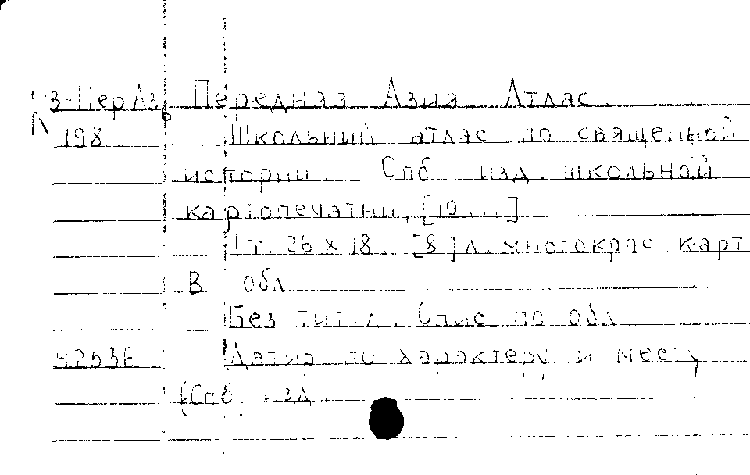 з-ПерАз Передняя Азия. Атлас.
198 Школьный атлас по священной
истории. Спб изд. школьной
картопечатни, [19...]
1 т. 26 х 18. [8] л. многокрас. карт
В обл
Без тит. л. Опис. по обл
Датир. по характеру и месту
(Спб) изд